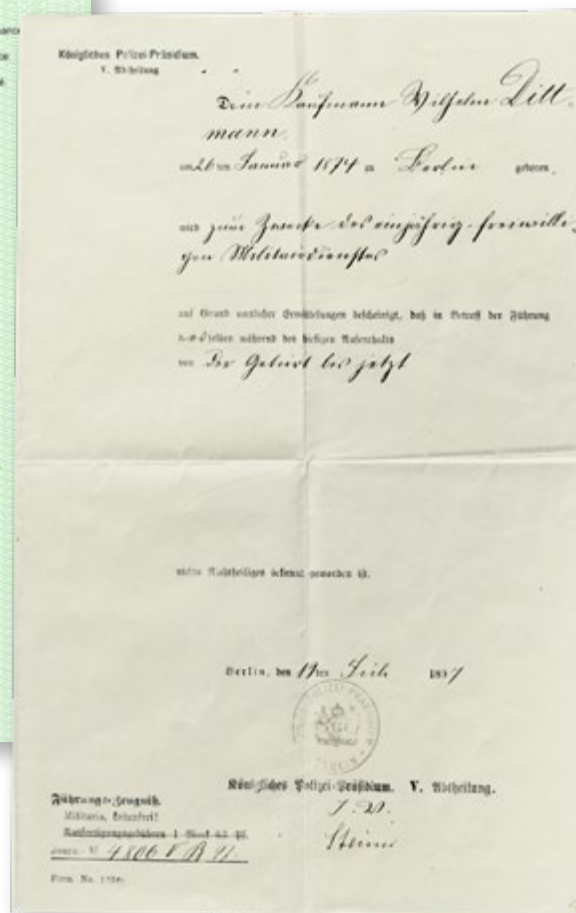 Königliches Polizei-Präsidium.
V. Abtheilung
Dem Kaufmann Wilhelm Ditt-
mann
am 26ten Januar 1874 zu Berlin geboren,
wird zum Zwecke des einjährig-freiwilli-
gen Militairdienstes
auf Grund amtlicher Ermittelungen bescheinigt, daß in Betreff der Führung
desselben während des hiesigen Aufenthalts
von der Geburt bis jetzt
nichts Nachtheiliges bekannt geworden ist.
Berlin, den 19ten 189
BERLIN
Königliches Polizei-Präsidium. V. Abtheilung.
Führungs-Zeugniß.
Militaria, kostenfrei!
Journ. 4806
Form. No.